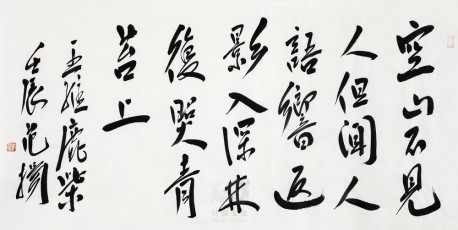 空山不見
人但聞人
語響返
影入深林
復照青
苔上
王維鹿柴
壬辰范揚